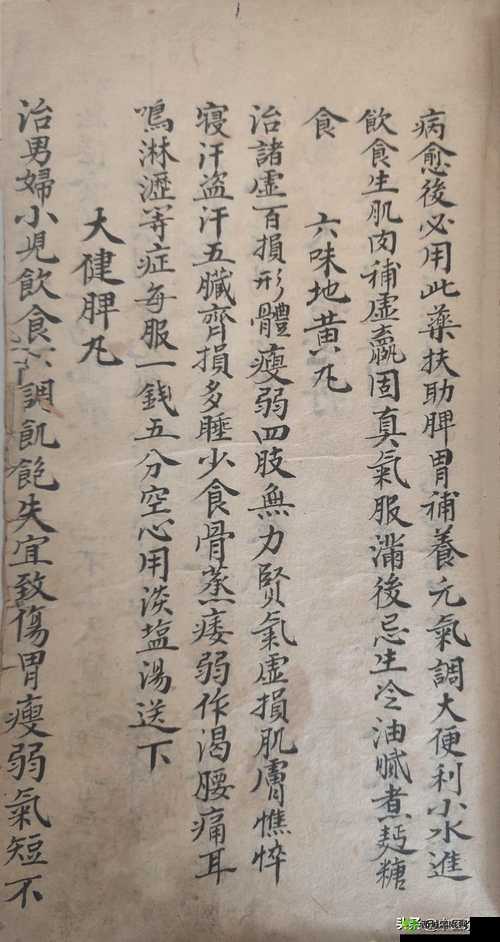 病愈後必用此藥扶助脾胃補養元氣調大便利小水進
飲食生肌肉補虛羸固真氣服滿後忌生冷油膩煮麪糖
食
六味地黄凡
治諸虛百損形體瘦弱四肢無力賢氣虛損肌膚憔悴
寝汗盗汗五臟齊損多睡少食骨蒸痿弱作渴腰痛耳
鳴淋瀝等症每服一錢五分空心用淡塩湯送下
大健脾凡
治男婦小児飲食不調飢飽失宜致傷胃瘦弱氣短不
头条